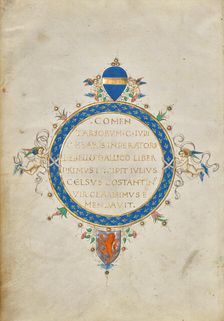 COMEN
TARIORUM·C·IVLI
CESARIS INPERATORIS
DE BELLO GALLICO LIBER
PRIMVS INCIPIT IVLIVS
CELSVS COSTANTIN
VIR CLARISIMVS E
MENDAVIT.